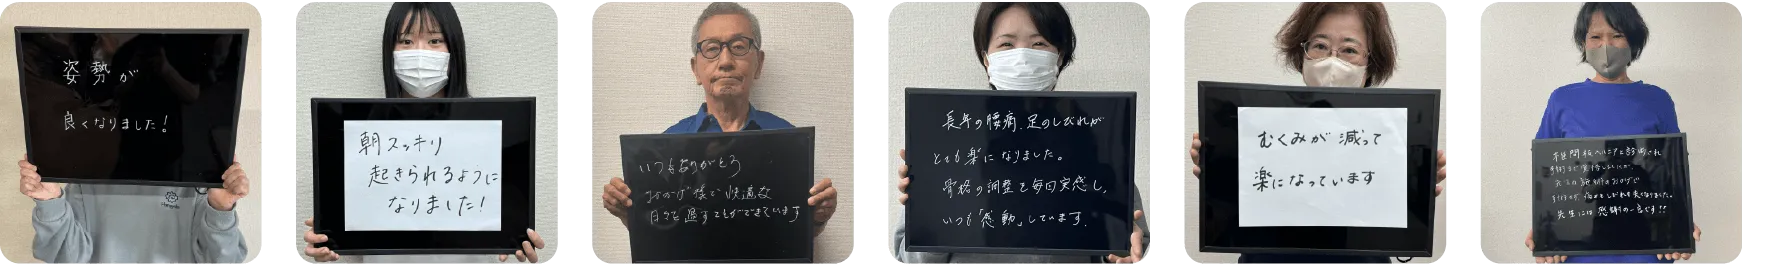 姿勢が
良くなりました!
朝スッキリ
起きられるように
なりました!
いつもありがとう
おかげ様で快適な
日々を過すことができています
長年の腰痛、足のしびれが
とても楽になりました。
骨格の調整を毎回実感し、
いつも「感動」しています。
むくみが減って
楽になっています
椎間板ヘルニアと診断され
先生の施術のおかげで
先生には感謝の一言です!!